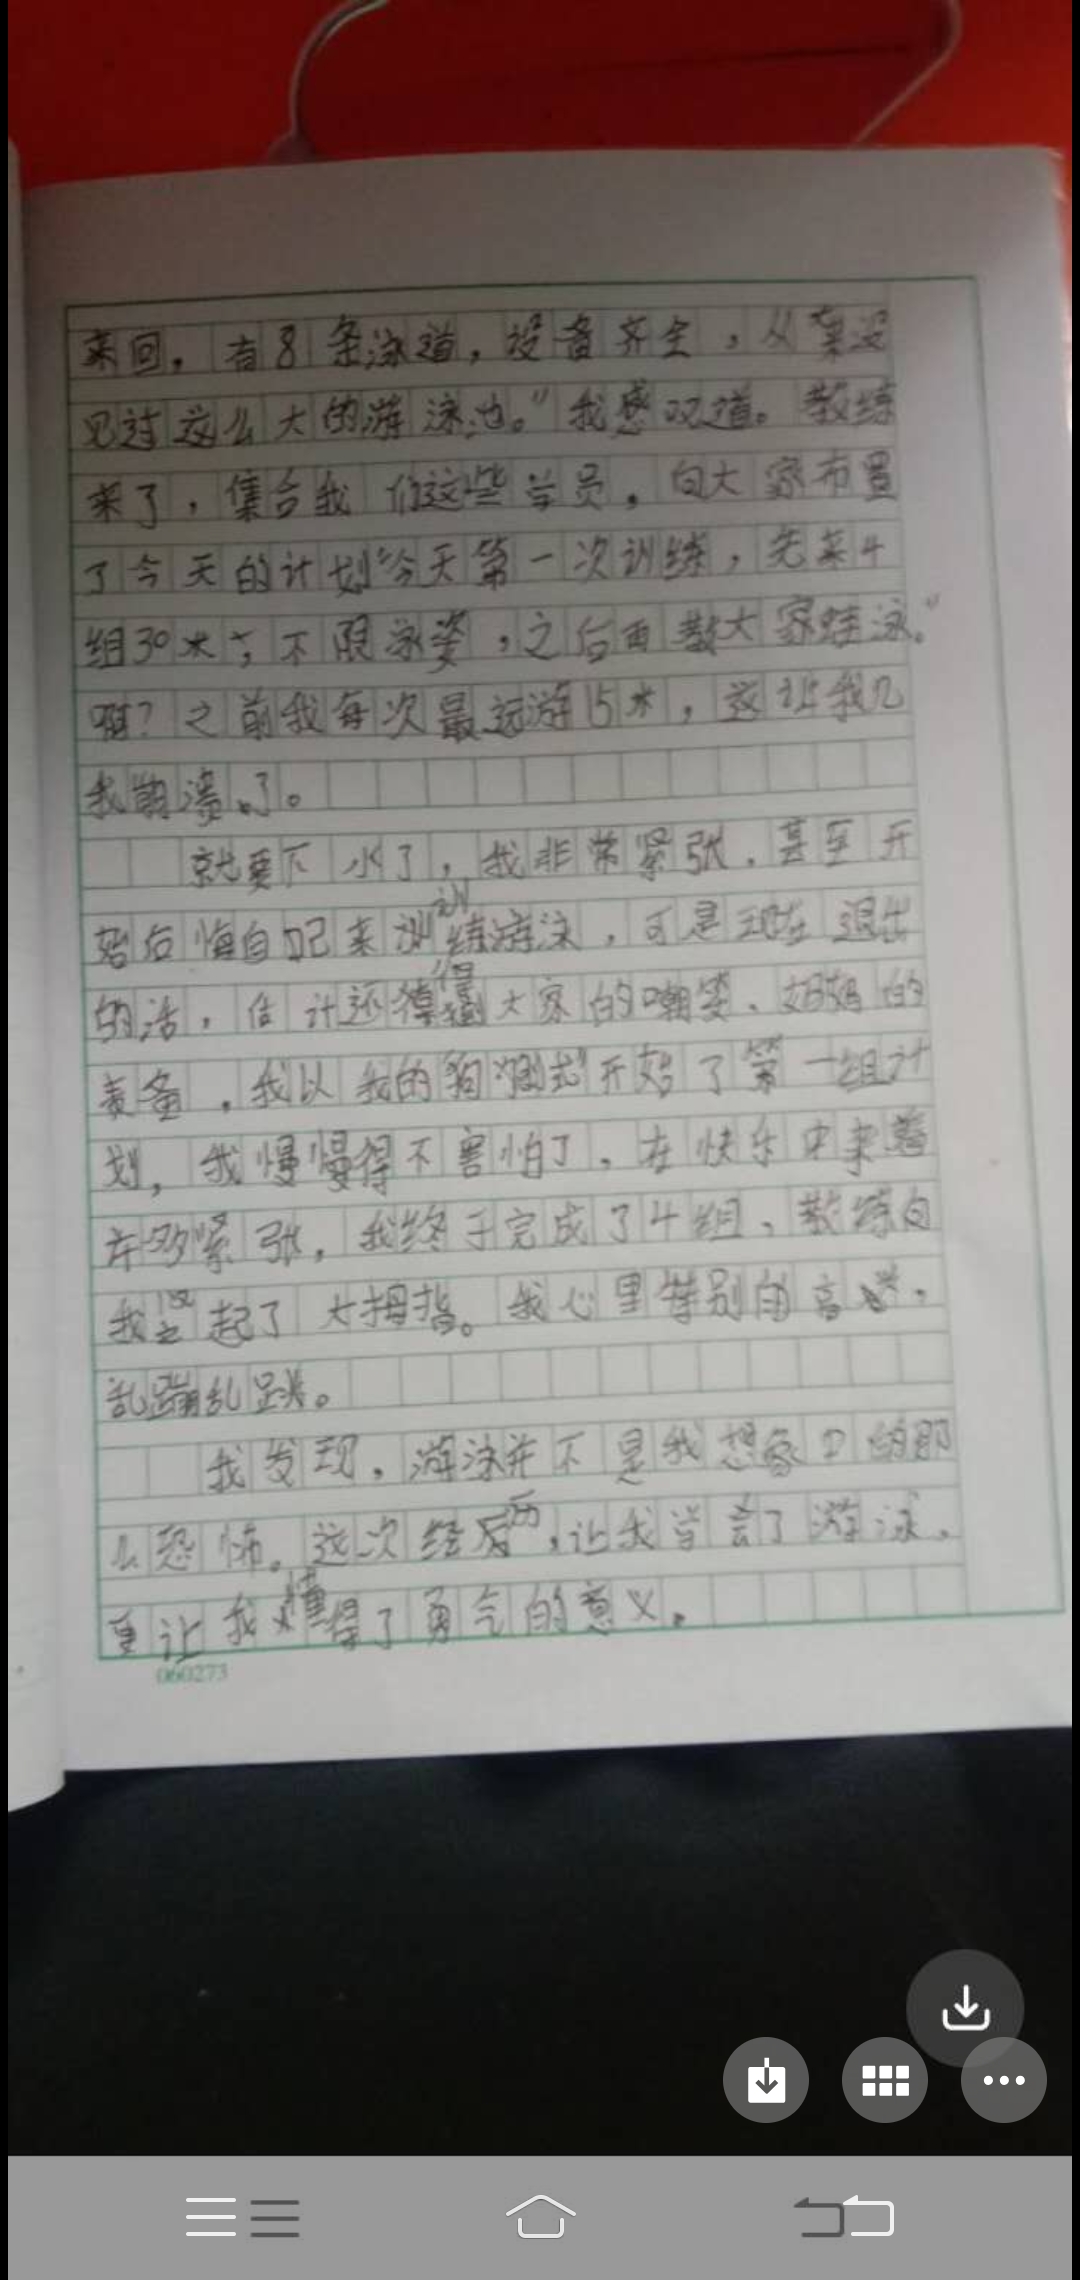 来回，有8条泳道，设备齐全，从来没
见过这么大的游泳池。"我感叹道。教练
来了，集合我们这些学员，向大家布置
了今天的计划"今天第一次训练，先来4
组30米，不限泳姿，之后再教大家蛙泳。"
啊？之前我每次最远游15米，这让我几
我崩溃了。
就要下水了，我非常紧张，甚至开
始后悔自己来训练游泳，可是现在退出
的话，估计还得得到大家的嘲笑、妈妈的
责备，我以我的狗刨式"开始了第一组计
划，我慢慢得不害怕了，在快乐中夹着
许多紧张，我终于完成了4组，教练向
我竖起了大拇指。我心里特别自高兴，
乱蹦乱跳。
我发现，游泳并不是我想象中的那
么恐怖。这次经历，让我学会了游泳，
更让我懂得了勇气的意义。
060273